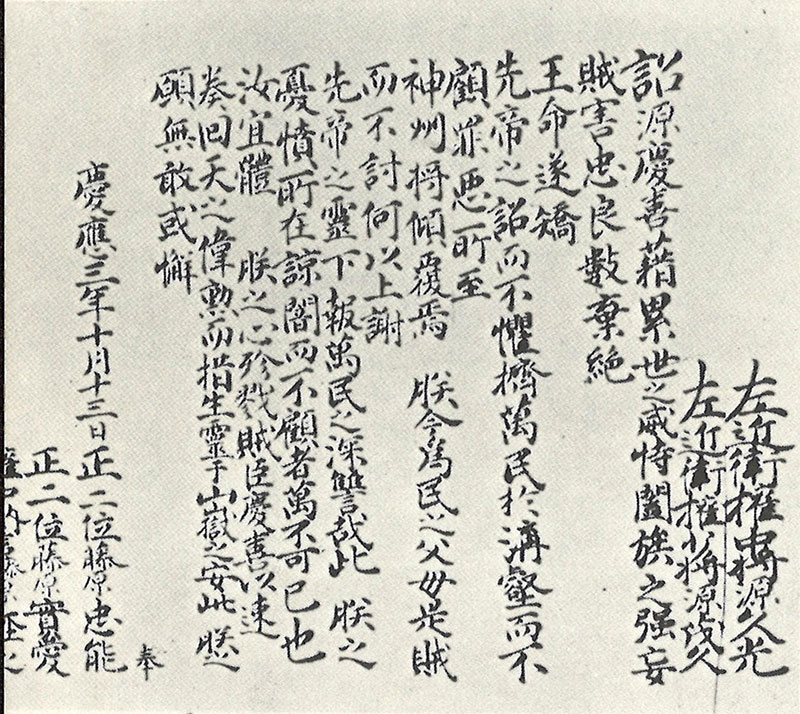 左近衛権中将源久光
左近衛権少将源茂久
詔源慶喜藉累世之威恃闔族之强妄
賊害忠良數棄絶
王命遂矯
先帝之詔而不懼擠萬民於溝壑而不
顧罪惡所至
神州将傾覆焉 朕今為民之父母是賊
而不討何以上謝
先帝之靈下報萬民之深讐哉此 朕之
憂憤所在諒闇而不顧者萬不可已也
汝宜體 朕之心殄戮賊臣慶喜以速
奏回天之偉勲而措生靈于山嶽之安此 朕之
願無敢或懈
慶應三年十月十三日 正二位藤原忠能
奉
正二位藤原實愛
權中納言藤原經之